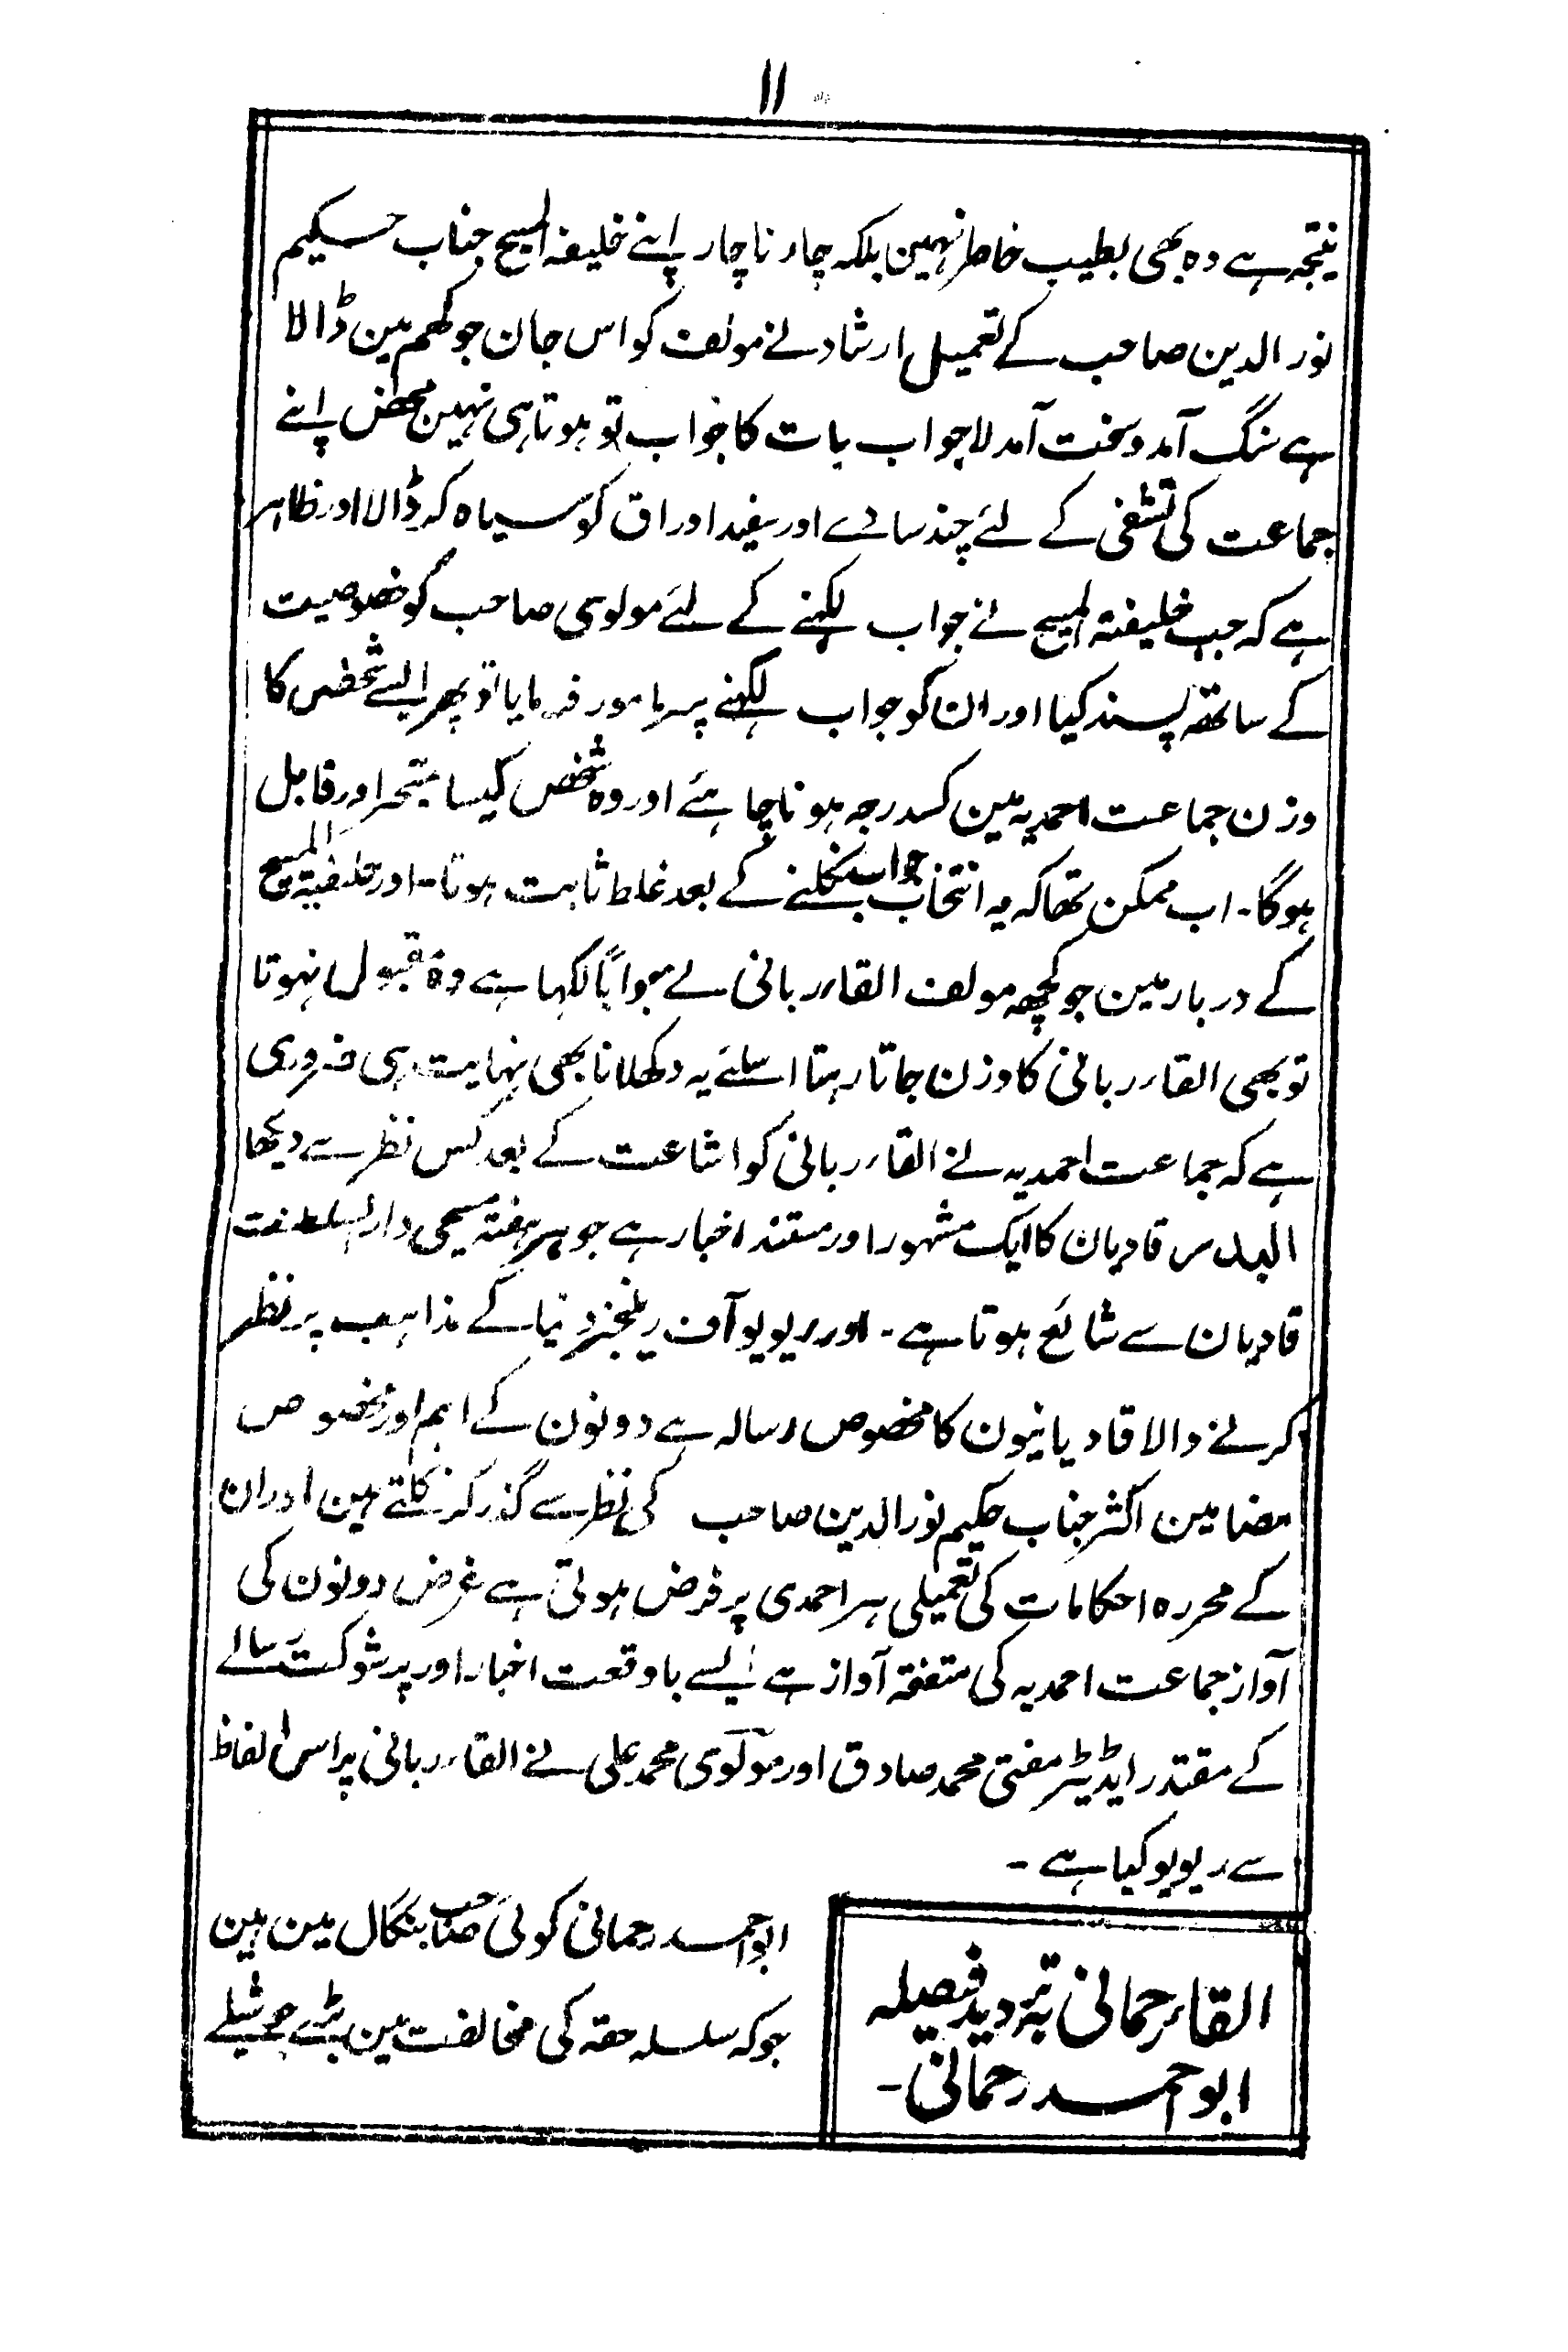 ۱۱
نتیجہ ہے وہ بھی بطیب خاطر نہین بلکہ چار ناچار اپنے خلیفۃ المسیح جناب حکیم
نور الدین صاحب کے تعمیل ارشاد نے مولف کو اس جان جوکھم مین ڈالا
ہے سنگ آمد و سخت آمد لاجواب بات کا جواب تو ہوتا ہی نہین محض اپنے
جماعت کی تشفی کے لئے چند سادے اور سفید اوراق کو سیاہ کر ڈالا اور ظاہر
ہے کہ جب خلیفۃ المسیح نے جواب لکہنے کے لئے مولوی صاحب کو خصوصیت
کے ساتھ پسند کیا اور ان کو جواب لکہنے پر مامور فرمایا تو پھر ایسے شخص کا
وزن جماعت احمدیہ مین کسدرجہ ہونا چاہئے اور وہ شخص کیسا متبحر اور قابل
ہوگا۔ اب ممکن تھا کہ یہ انتخاب جواب نکلنے کے بعد غلط ثابت ہوتا۔ اور خلیفۃ المسیح
کے دربار مین جو کچھ مولف القاء ربانی نے جواباً لکہا ہے وہ قبول نہوتا
تو بھی القاء ربانی کا وزن جاتا رہتا اسلئے یہ دکھلانا بھی نہایت ہی ضروری
ہے کہ جماعت احمدیہ نے القاء ربانی کو اشاعت کے بعد کس نظر سے دیکھا
البدر قادیان کا ایک مشہور اور مستند اخبار ہے جو ہر ہفتہ مسیحی دار السلطنت
قادیان سے شائع ہوتا ہے۔ اور ریویو آف ریلیجنز دنیا کے مذاہب پر نظر
کرنے والا قادیانیون کا مخصوص رسالہ ہے دونون کے اہم اور مخصوص
مضامین اکثر جناب حکیم نور الدین صاحب کی نظر سے گذر کر نکلتے ہین اور ان
کے محررہ احکامات کی تعمیلی ہر احمدی پر فرض ہوتی ہے غرض دونون کی
آواز جماعت احمدیہ کی متفقہ آواز ہے ایسے باوقعت اخبار اور پرشوکت رسالے
کے مقتدر ایڈیٹر مفتی محمد صادق اور مولوی محمد علی نے القاء ربانی پر اس الفاظ
سے ریویو کیا ہے۔
القاء رحمانی بتردید فیصلہ
ابو احمد رحمانی۔
ابو احمد رحمانی کوئی صاحب بنگال مین ہین
جو کہ سلسلہ حقہ کی مخالفت مین بڑے جوشیلے